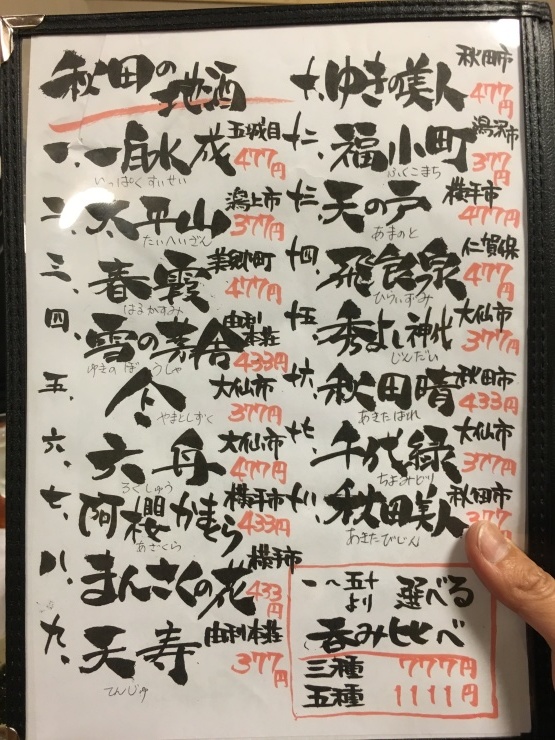 秋田の地酒
一、一白水成 五城目 477円
いっぱくすいせい
二、太平山 潟上市 377円
たいへいざん
三、春霞 美郷町 477円
はるかすみ
四、雪の茅舎 由利本荘 433円
ゆきのぼうしゃ
五、 大仙市 377円
やまとしずく
六、六舟 大仙市 477円
ろくしゅう
七、阿櫻かまくら 横手市 433円
あざくら
八、まんさくの花 横手市 433円
九、天寿 由利本荘 377円
てんじゅ
十、ゆきの美人 秋田市 477円
十二、福小町 湯沢市 377円
ふくこまち
十三、天の戸 横手市 477円
あまのと
十四、飛良泉 仁賀保 477円
ひらいずみ
十五、秀よし神代 大仙市 377円
じんだい
十六、秋田晴 秋田市 433円
あきたばれ
十七、千代緑 大仙市 377円
ちよみどり
十八、秋田美人 秋田市 377
あきたびじん
一〜五十より 選べる
呑み比べ
三種 777円
五種 1111円